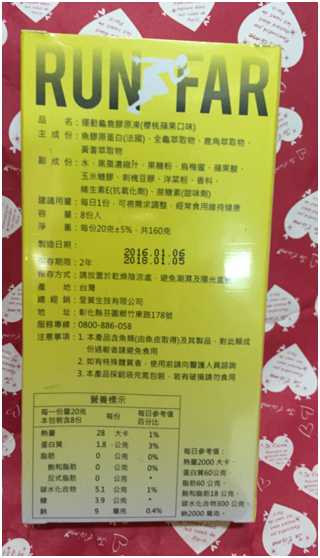 RUN FAR
品　名：運動龜魚膠原凍(櫻桃蘋果口味)
主成份：魚膠原蛋白(法國)、全龜萃取物、鹿角萃取物、
黃耆萃取物
副成份：水、果蔬濃縮汁、果糖粉、烏梅蜜、蘋果酸、
玉米糖膠、刺槐豆膠、洋菜粉、香料、
維生素E(抗氧化劑)、蔗糖素(甜味劑)
建議用量：每日1份，可視需求調整，經常食用維持健康
容　量：8份入
淨　重：每份20克±5%，共160克
製造日期：2016.01.06
保存期限：2年 2018.01.05
保存方式：請放置於乾燥陰涼處，避免潮濕及陽光直射
產　地：台灣
總經銷：登翼生技有限公司
地　址：彰化縣芬園鄉竹東路178號
服務專線：0800-886-058
注意事項：1. 本產品含魚類(由魚皮取得)及其製品，對此類成
份過敏者請避免食用
2. 如有特殊體質者，使用前請向醫護人員諮詢
3. 本產品採鋁箔充氮包裝，若有破損請勿食用
營養標示
每一份量20克
本包裝含8份
每份
每日參考值
百分比
熱量 28 大卡 1%
蛋白質 1.8 公克 3%
脂肪 0 公克 0%
飽和脂肪 0 公克 0%
反式脂肪 0 公克 *
碳水化合物 5.1 公克 1%
糖 3.9 公克 *
鈉 9 毫克 0.4%
*每日參考值：
熱量2000大卡、
蛋白質60公克、
脂肪60公克、
飽和脂肪18公克、
碳水化合物300公克、
鈉2000毫克。